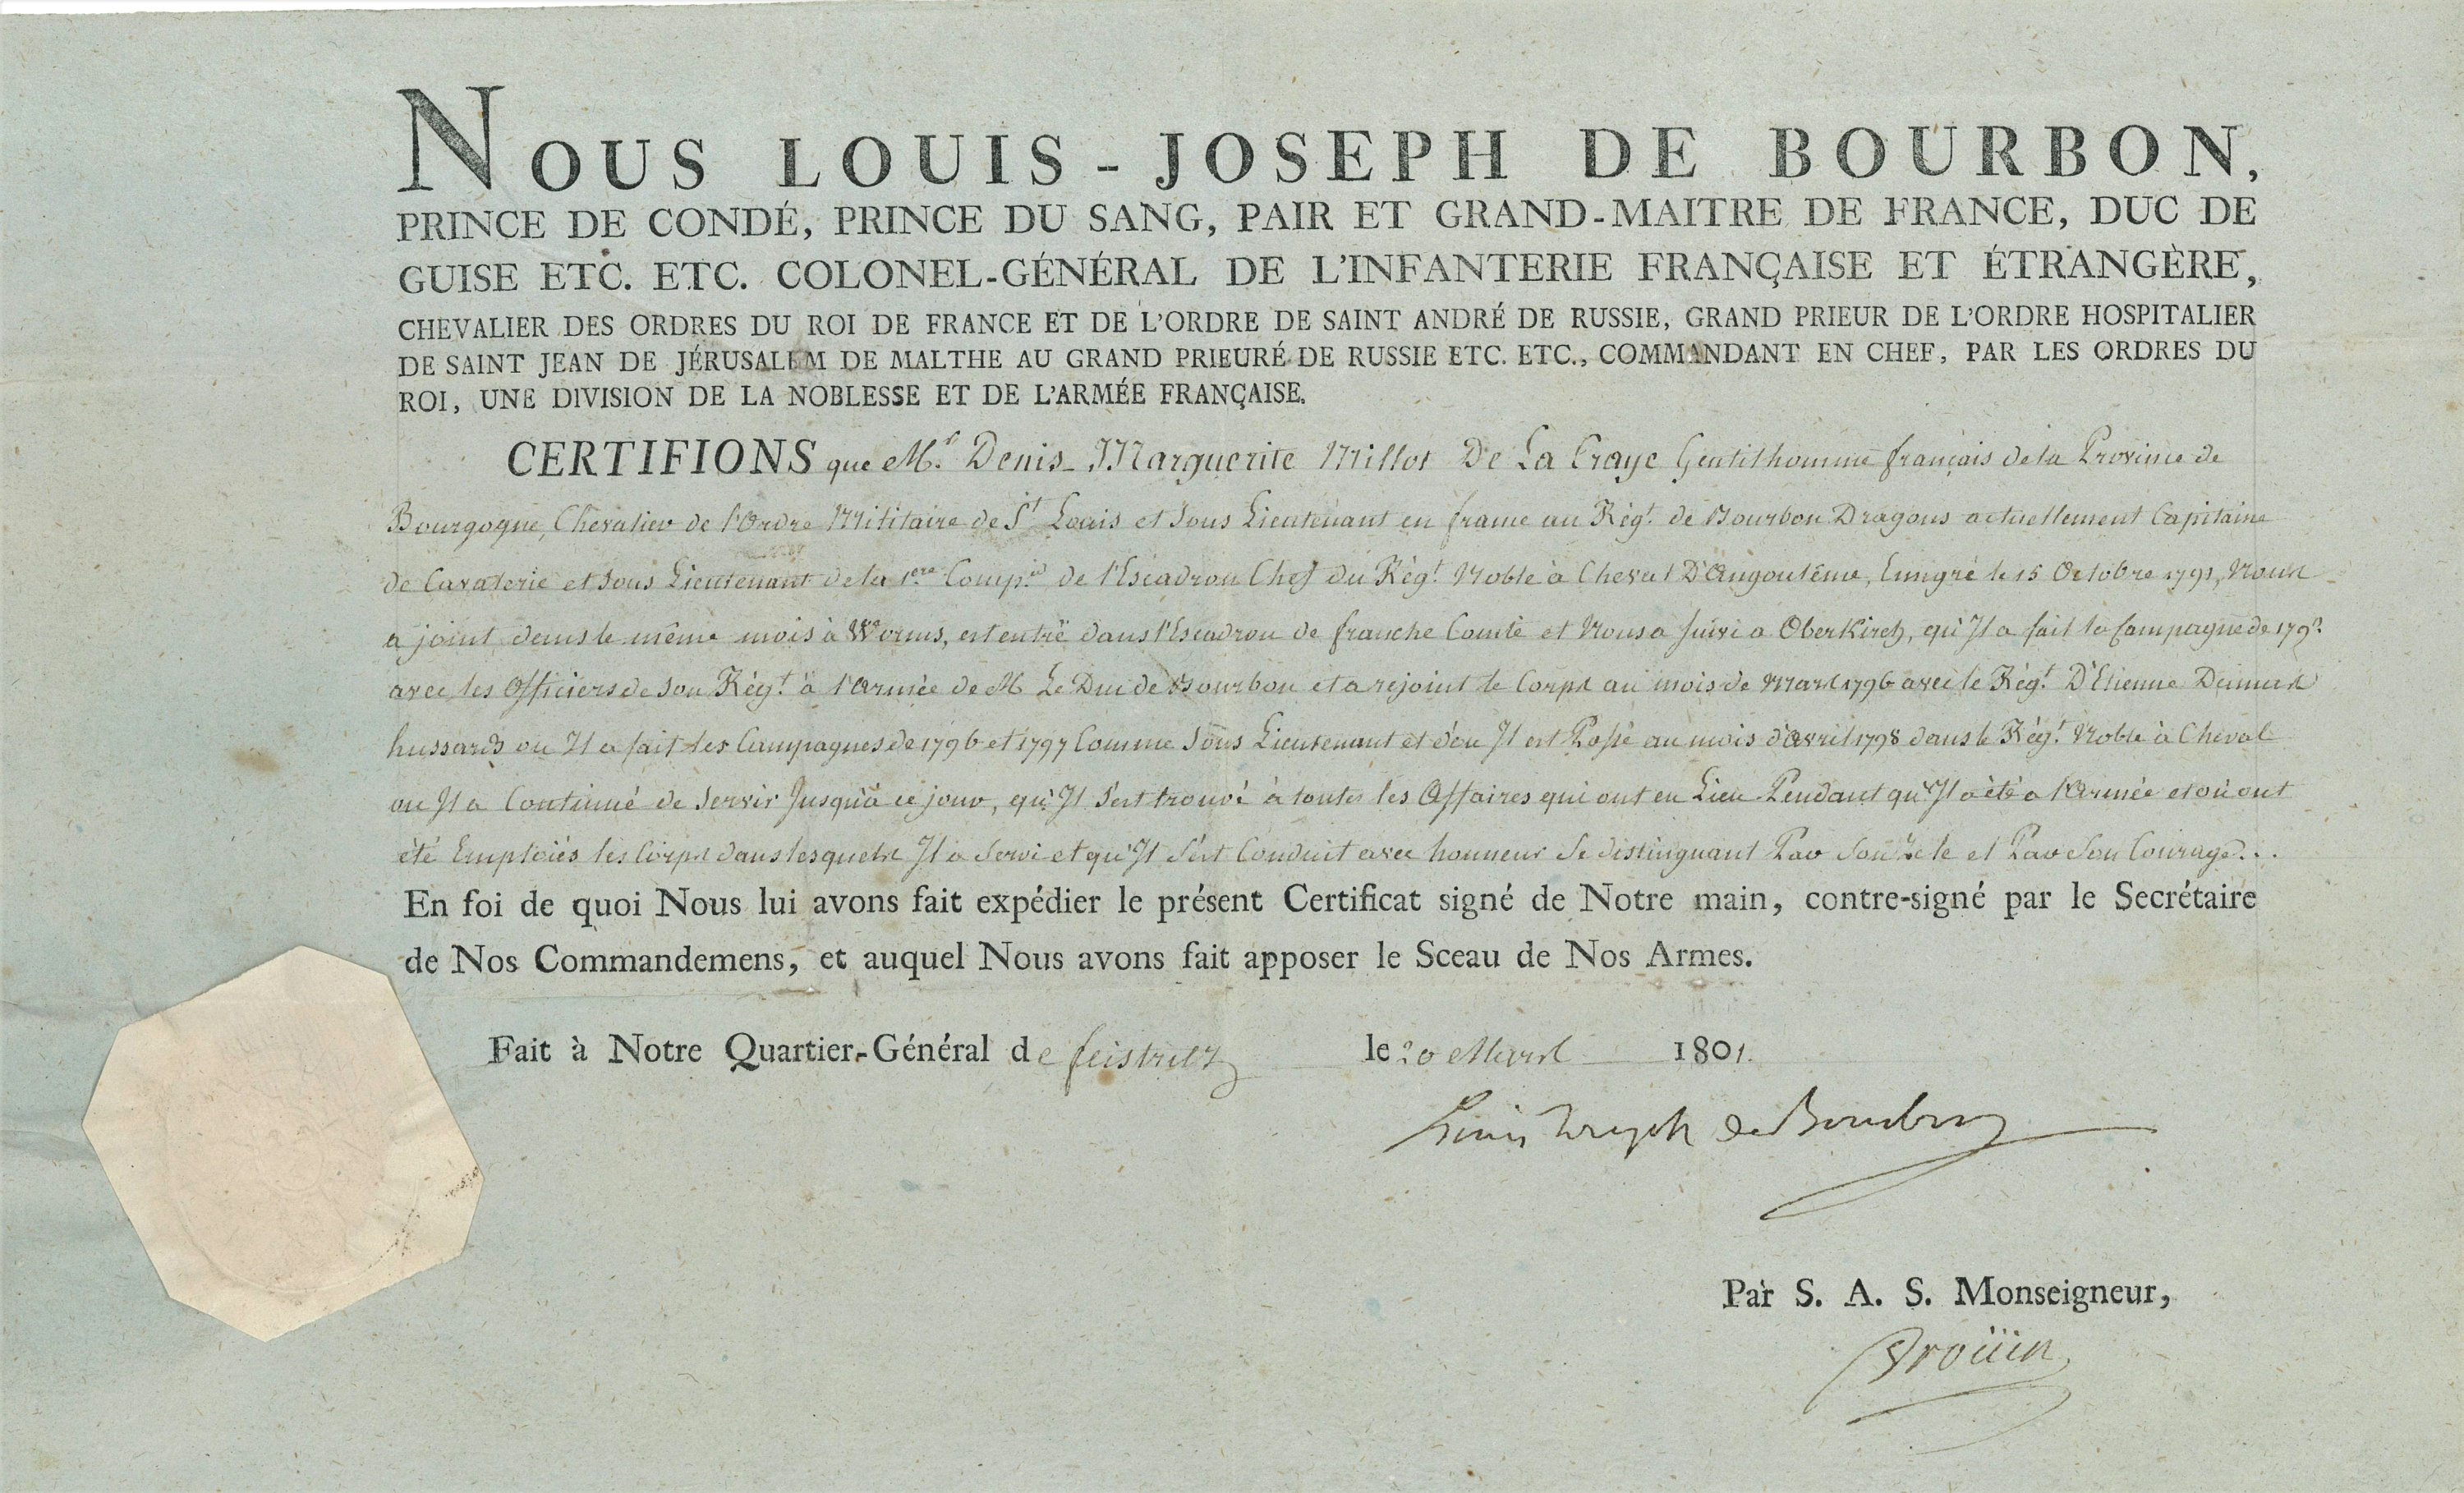 NOUS LOUIS-JOSEPH DE BOURBON,
PRINCE DE CONDÉ, PRINCE DU SANG, PAIR ET GRAND-MAITRE DE FRANCE, DUC DE
GUISE ETC. ETC. COLONEL-GÉNÉRAL DE L'INFANTERIE FRANÇAISE ET ÉTRANGÈRE,
CHEVALIER DES ORDRES DU ROI DE FRANCE ET DE L'ORDRE DE SAINT ANDRÉ DE RUSSIE, GRAND PRIEUR DE L'ORDRE HOSPITALIER
DE SAINT JEAN DE JÉRUSALEM DE MALTHE AU GRAND PRIEURÉ DE RUSSIE ETC. ETC., COMMANDANT EN CHEF, PAR LES ORDRES DU
ROI, UNE DIVISION DE LA NOBLESSE ET DE L'ARMÉE FRANÇAISE.
CERTIFIONS que Mr. Denis-Marguerite Millot De La Craye Gentilhomme français de la Province de
Bourgogne, Chevalier de l'Ordre Militaire de St Louis et Sous Lieutenant en france au Régt. de Bourbon Dragons actuellement Capitaine
de Cavalerie et Sous Lieutenant de la 1ere Compie de l'Escadron Chef du Régt. Noble à Cheval D'Angoulême, Emigré le 15 Octobre 1791, Nous
a joint dans le même mois à Worms, est entré dans l'Escadron de franche Comté et Nous a suivi a Oberkirch, qu'Il a fait la Campagne de
avec les Officiers de son Régt. à l'Armée de M Le Duc de Bourbon et a rejoint le Corps au mois de Mars 1796 avec le Régt. D'Etienne Damas
hussards ou Il a fait les Campagnes de 1796 et 1797 Comme Sous Lieutenant et d'ou Il est Passé au mois d'Avril 1798 dans le Régt. Noble à Cheval
ou Il a Continué de Servir Jusqu'à ce jour, qu'Il s'est trouvé à toutes les Affaires qui ont eu Lieu Pendant qu'Il a été a l'Armée et où ont
été Emploiés les Corps dans lesquels Il a Servi et qu'Il s'est Conduit avec honneur Se distinguant Par Son Zele et Par Son Courage...
En foi de quoi Nous lui avons fait expédier le présent Certificat signé de Notre main, contre-signé par le Secrétaire
de Nos Commandemens, et auquel Nous avons fait apposer le Sceau de Nos Armes.
Fait à Notre Quartier-Général de feistritz le 20 Mars 1801.
Louis Joseph de Bourbon
Par S. A. S. Monseigneur,
Droüin